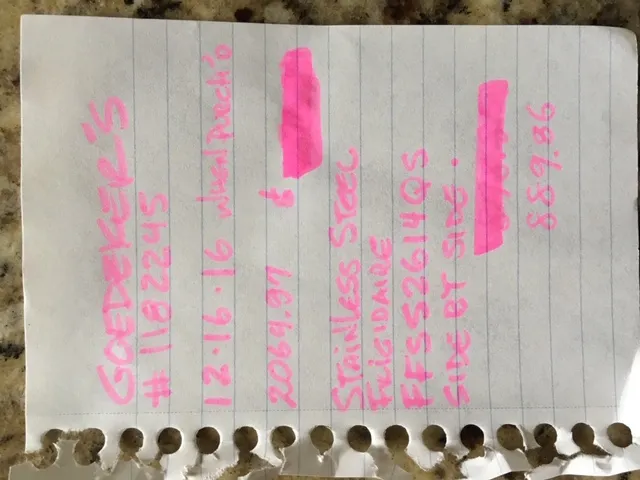 GOEDEKER'S
#1182245
12.16.16 WHEN PURCH'D
2069.97 &
STAINLESS STEEL
FRIGIDAIRE
FFSS2614QS
SIDE BY SIDE.
889.06